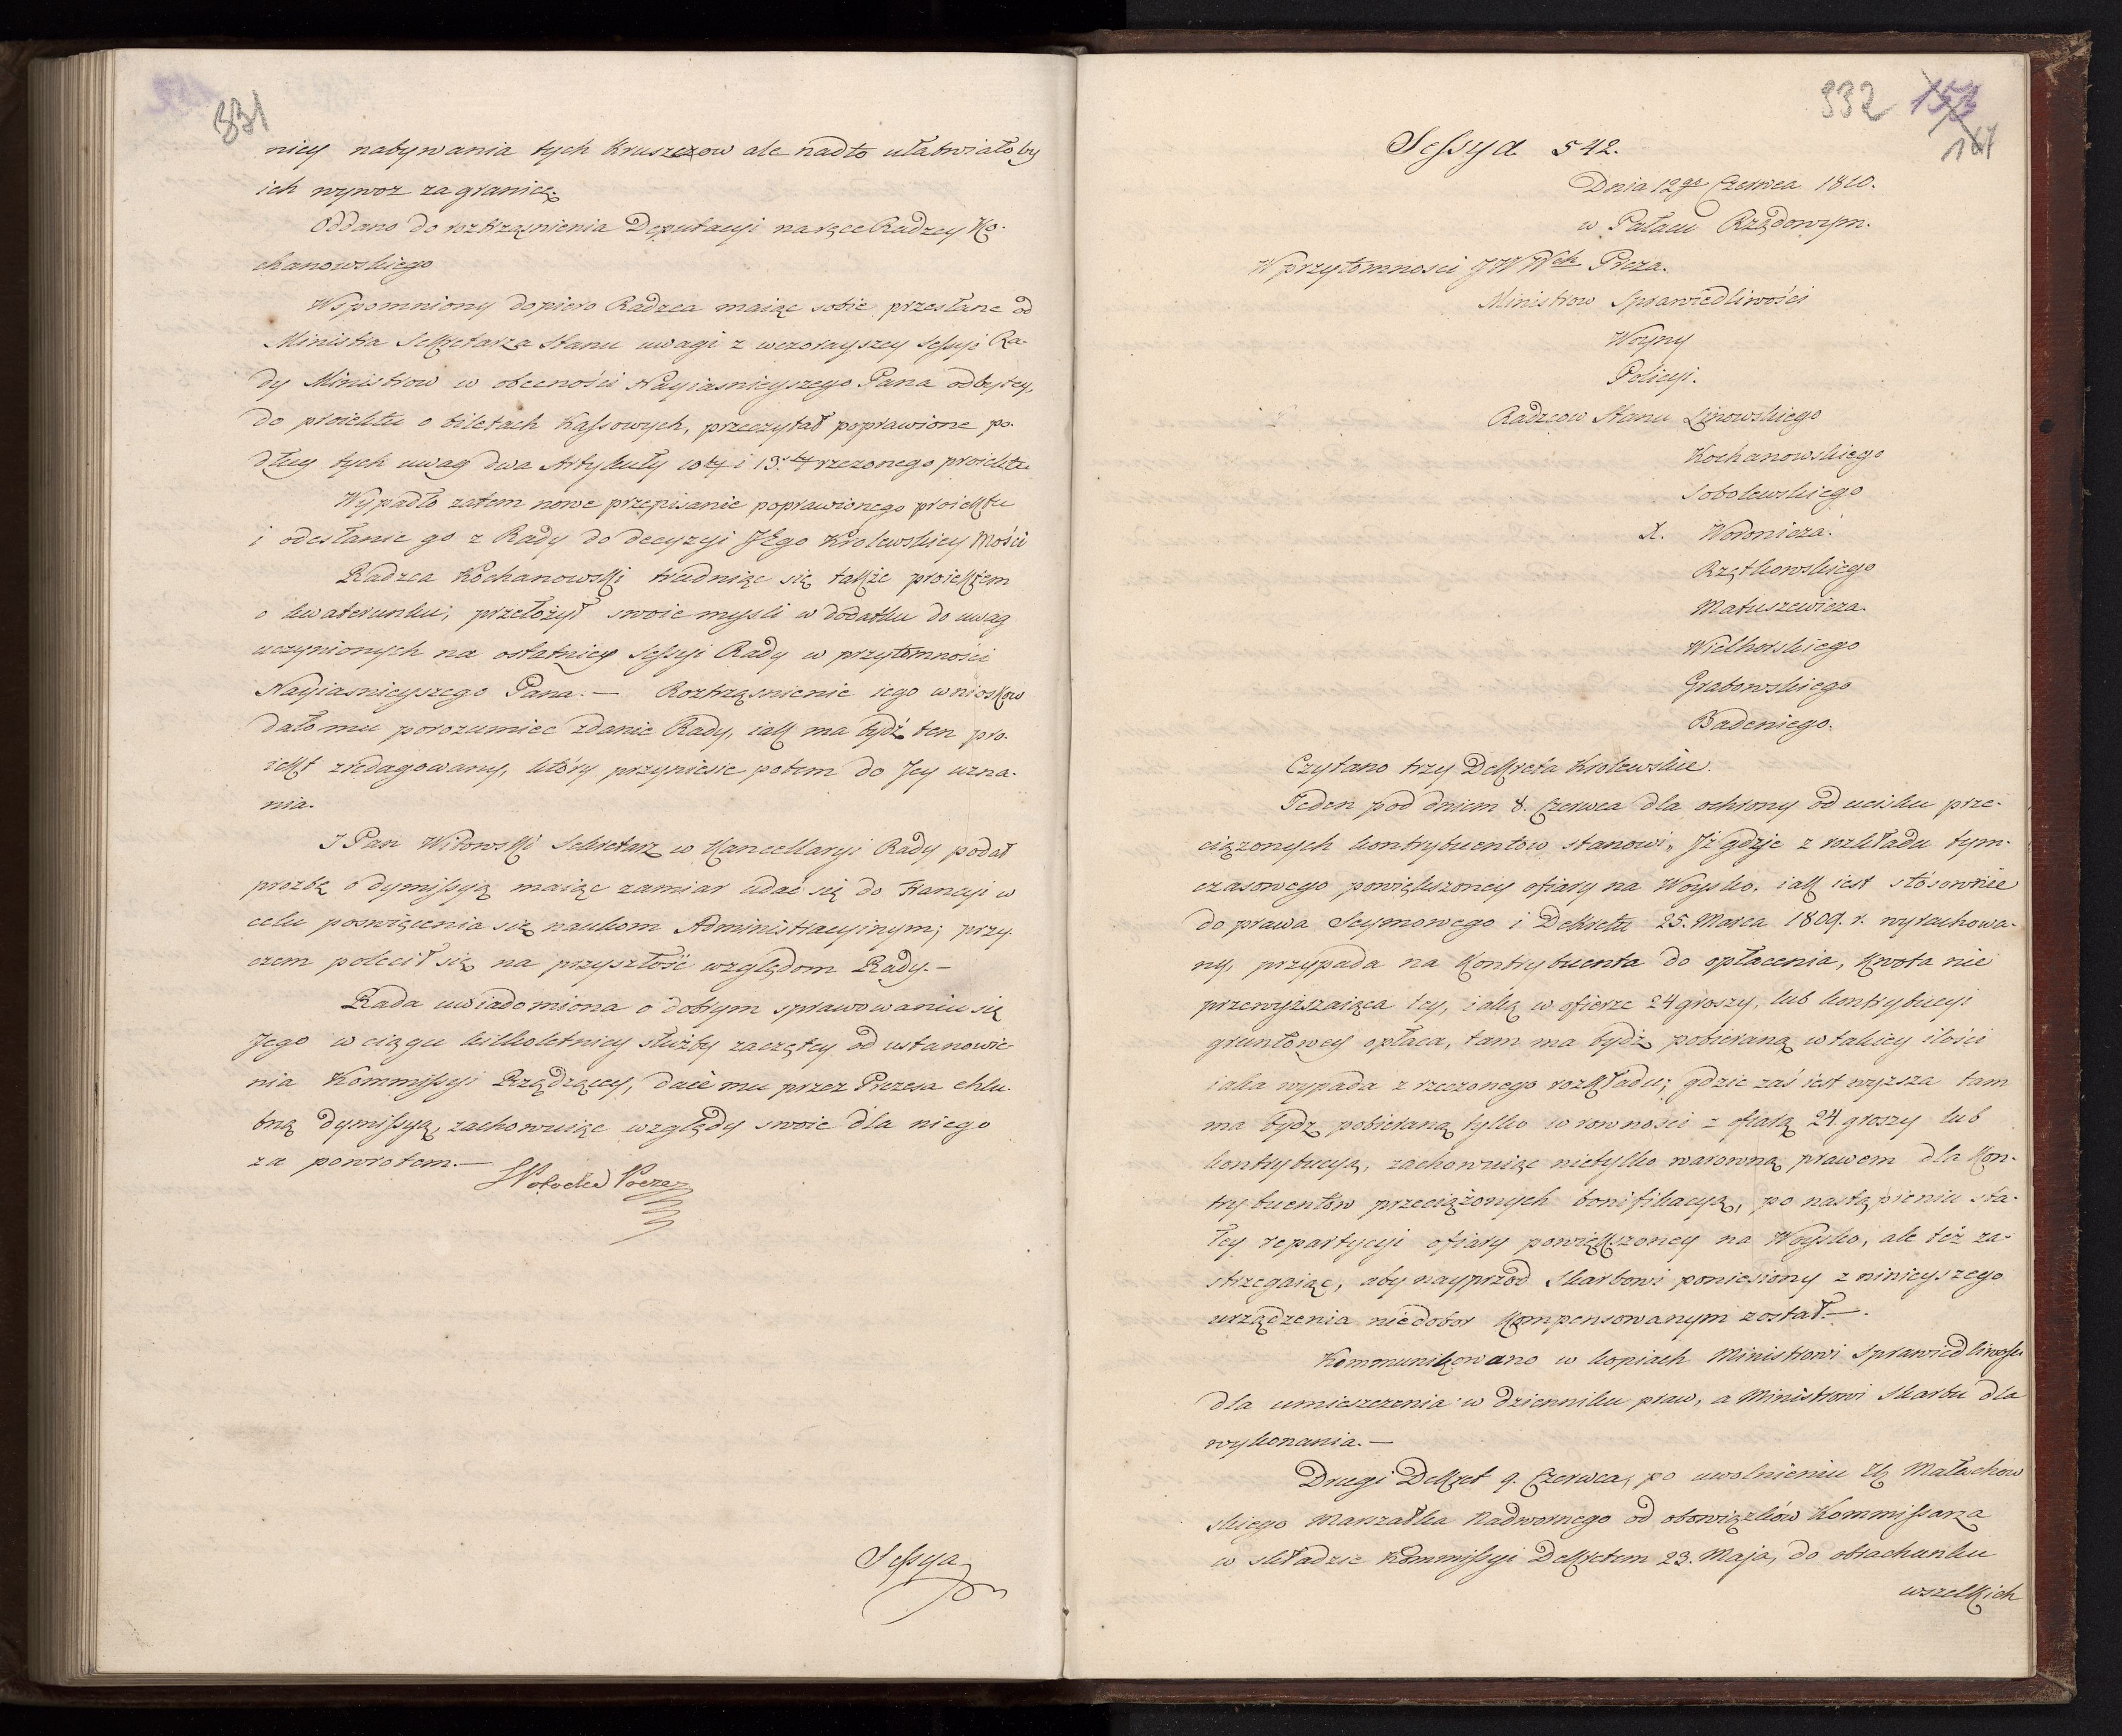 331
nicy nabywania tych Kruszczow ale nadto ułatwiałoby
ich wywoz za granicę.
Oddano do roztrząsnienia Deputacyi na ręce Radzcy Ko-
chanowskiego
Wspomniony dopiero Radzca maiąc sobie przesłane od
Ministra Sekretarza Stanu uwagi z wczorayszey Sessyi Ra-
dy Ministrow w obecności Nayiasnieyszego Pana odbytey,
do proiektu o biletach Kassowych, przeczytał poprawione po-
dług tych uwag dwa Artykuły 10ty i 13.ty rzeczonego proiektu
Wypadło zatem nowe przepisanie poprawionego proiektu
i odesłanie go z Rady do decyzyi JEgo Krolewskiey Mości
Radzca Kochanowski trudniąc się także proiektem
o kwaterunku, przełożył swoie mysli w dodatku do uwag
uczynionych na ostatniey Sessyi Rady w przytomności
Nayiasnieyszego Pana. — Roztrząsnienie iego wnioskow
dało mu porozumiec zdanie Rady, iak ma bydź ten pro-
iekt zredagowany, który przyniesie potem do Jey uzna-
nia.
J Pan Witowski Sekretarz w Kancellaryi Rady podał
prozbę o dymissyią maiąc zamiar udać się do Francyi w
celu poswięcenia się naukom Administracyinym; przy
czem polecił się na przyszłość względom Rady. —
Rada uwiadomiona o dobrym sprawowaniu się
Jego w ciągu kilkoletniey służby zaczętey od ustanowie-
nia Kommissyi Rządzącey, daie mu przez Prezesa chlu-
bną dymissyą, zachowuiąc względy swoie dla niego
za powrotem. —
SPotocki Prezes
Sessya
332 153
167
Sessya 542.
Dnia 12go Czerwca 1810.
w Pałacu Rządowym.
W przytomnosci JWWch Preza.
Ministrow Sprawiedliwości
Woyny
Policyi.
Radzcow Stanu Linowskiego
Kochanowskiego
Sobolewskiego
X. Woronicza.
Rzętkowskiego
Matuszewicza.
Wielhorskiego
Grabowskiego
Badeniego.
Czytano trzy Dekreta Krolewskie.
Jeden pod dniem 8. Czerwca dla ochrony od ucisku prze-
ciązonych kontrybuentow stanowi, Jż gdzie z rozkładu tym-
czasowego powiększoney ofiary na Woysko, iak iest stósownie
do prawa Seymowego i Dekretu 25. Marca 1809. r. wyrachowa-
ny, przypada na Kontrybuenta do opłacenia, kwota nie
przewyższaiąca tey, iaką w ofierze 24 groszy, lub kontrybucyi
gruntowey opłaca, tam ma bydź pobieraną w takiey ilości
iaka wypada z rzeczonego rozkładu; gdzie zaś iest wyzsza tam
ma bydz pobieraną tylko w rowności z ofiarą 24 groszy lub
kontrybucyą, zachowuiąc nietylko warowną prawem dla Kon-
trybuentow przeciążonych bonifikacyą, po nastąpieniu sta-
łey repartycyi ofiary powiększoney na Woysko, ale też za-
strzegaiąc, aby nayprzod Skarbowi poniesiony z ninieyszego
urządzenia niedobor kompensowanym został. —
Kommunikowano w kopiach Ministrowi Sprawiedliwości
dla umieszczenia w dzienniku praw, a Ministrowi Skarbu dla
wykonania. —
Drugi Dekret 9. Czerwca, po uwolnieniu Małachow
skiego Marszałka Nadwornego od obowiązków Kommissarza
w składzie Kommissyi Dekretem 23. Maja, do obrachunku
wszelkich